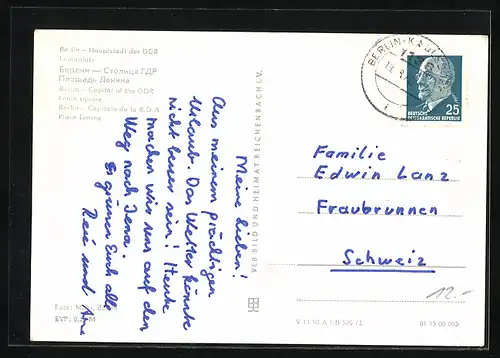 Berlin – Hauptstadt der DDR
Leninplatz
Берлин — Столица ГДР
Площадь Ленина
Berlin – Capital of the GDR
Lenin square
Berlin – Capitale de la R.D.A.
Place Lénine
Meine Lieben!
Aus meinem prächtigen
Urlaub. Das Wetter könnte
nicht besser sein! Heute
machen wir uns auf den
Weg nach Jena.
Es grüssen Euch alle
René und
VEB BILD UND HEIMAT REICHENBACH I. V.
BERLIN-
25
DEUTSCHE
DEMOKRATISCHE REPUBLIK
Familie
Edwin Lanz
Fraubrunnen
Schweiz
12.-
Foto:
EVP: M
01 15 00 065